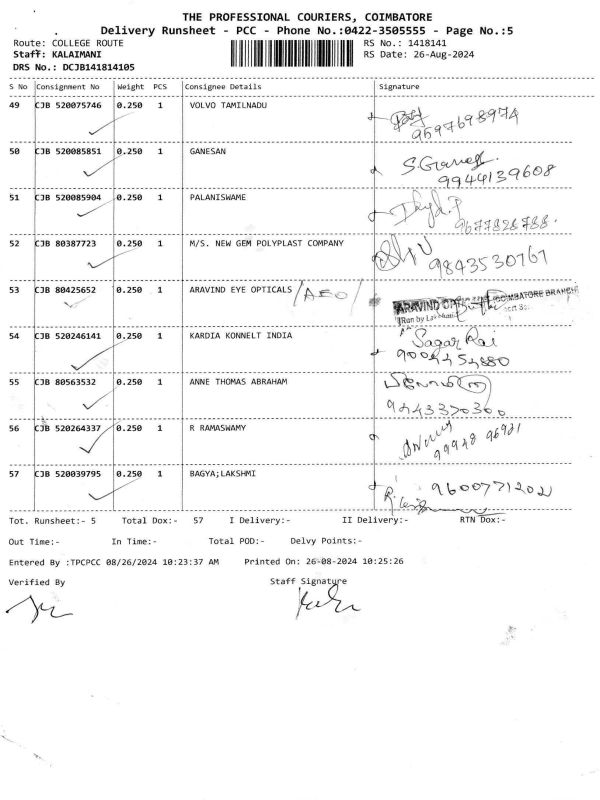 THE PROFESSIONAL COURIERS, COIMBATORE
Delivery Runsheet - PCC - Phone No.:0422-3505555 - Page No.:5
Route: COLLEGE ROUTE RS No.: 1418141
Staff: KALAIMANI RS Date: 26-Aug-2024
DRS No.: DCJB141814105
S No Consignment No Weight PCS Consignee Details Signature
49 CJB 520075746 0.250 1 VOLVO TAMILNADU
9597698974
50 CJB 520085851 0.250 1 GANESAN
9944139608
51 CJB 520085904 0.250 1 PALANISWAME
9677828788
52 CJB 80387723 0.250 1 M/S. NEW GEM POLYPLAST COMPANY
9843530767
53 CJB 80425652 0.250 1 ARAVIND EYE OPTICALS /AEO/
ARAVIND COIMBATORE BRANCH
54 CJB 520246141 0.250 1 KARDIA KONNELT INDIA Sagar Rai
55 CJB 80563532 0.250 1 ANNE THOMAS ABRAHAM
56 CJB 520264337 0.250 1 R RAMASWAMY
57 CJB 520039795 0.250 1 BAGYA;LAKSHMI
9600771202
Tot. Runsheet:- 5 Total Dox:- 57 I Delivery:- II Delivery:- RTN Dox:-
Out Time:- In Time:- Total POD:- Delvy Points:-
Entered By :TPCPCC 08/26/2024 10:23:37 AM Printed On: 26-08-2024 10:25:26
Verified By Staff Signature